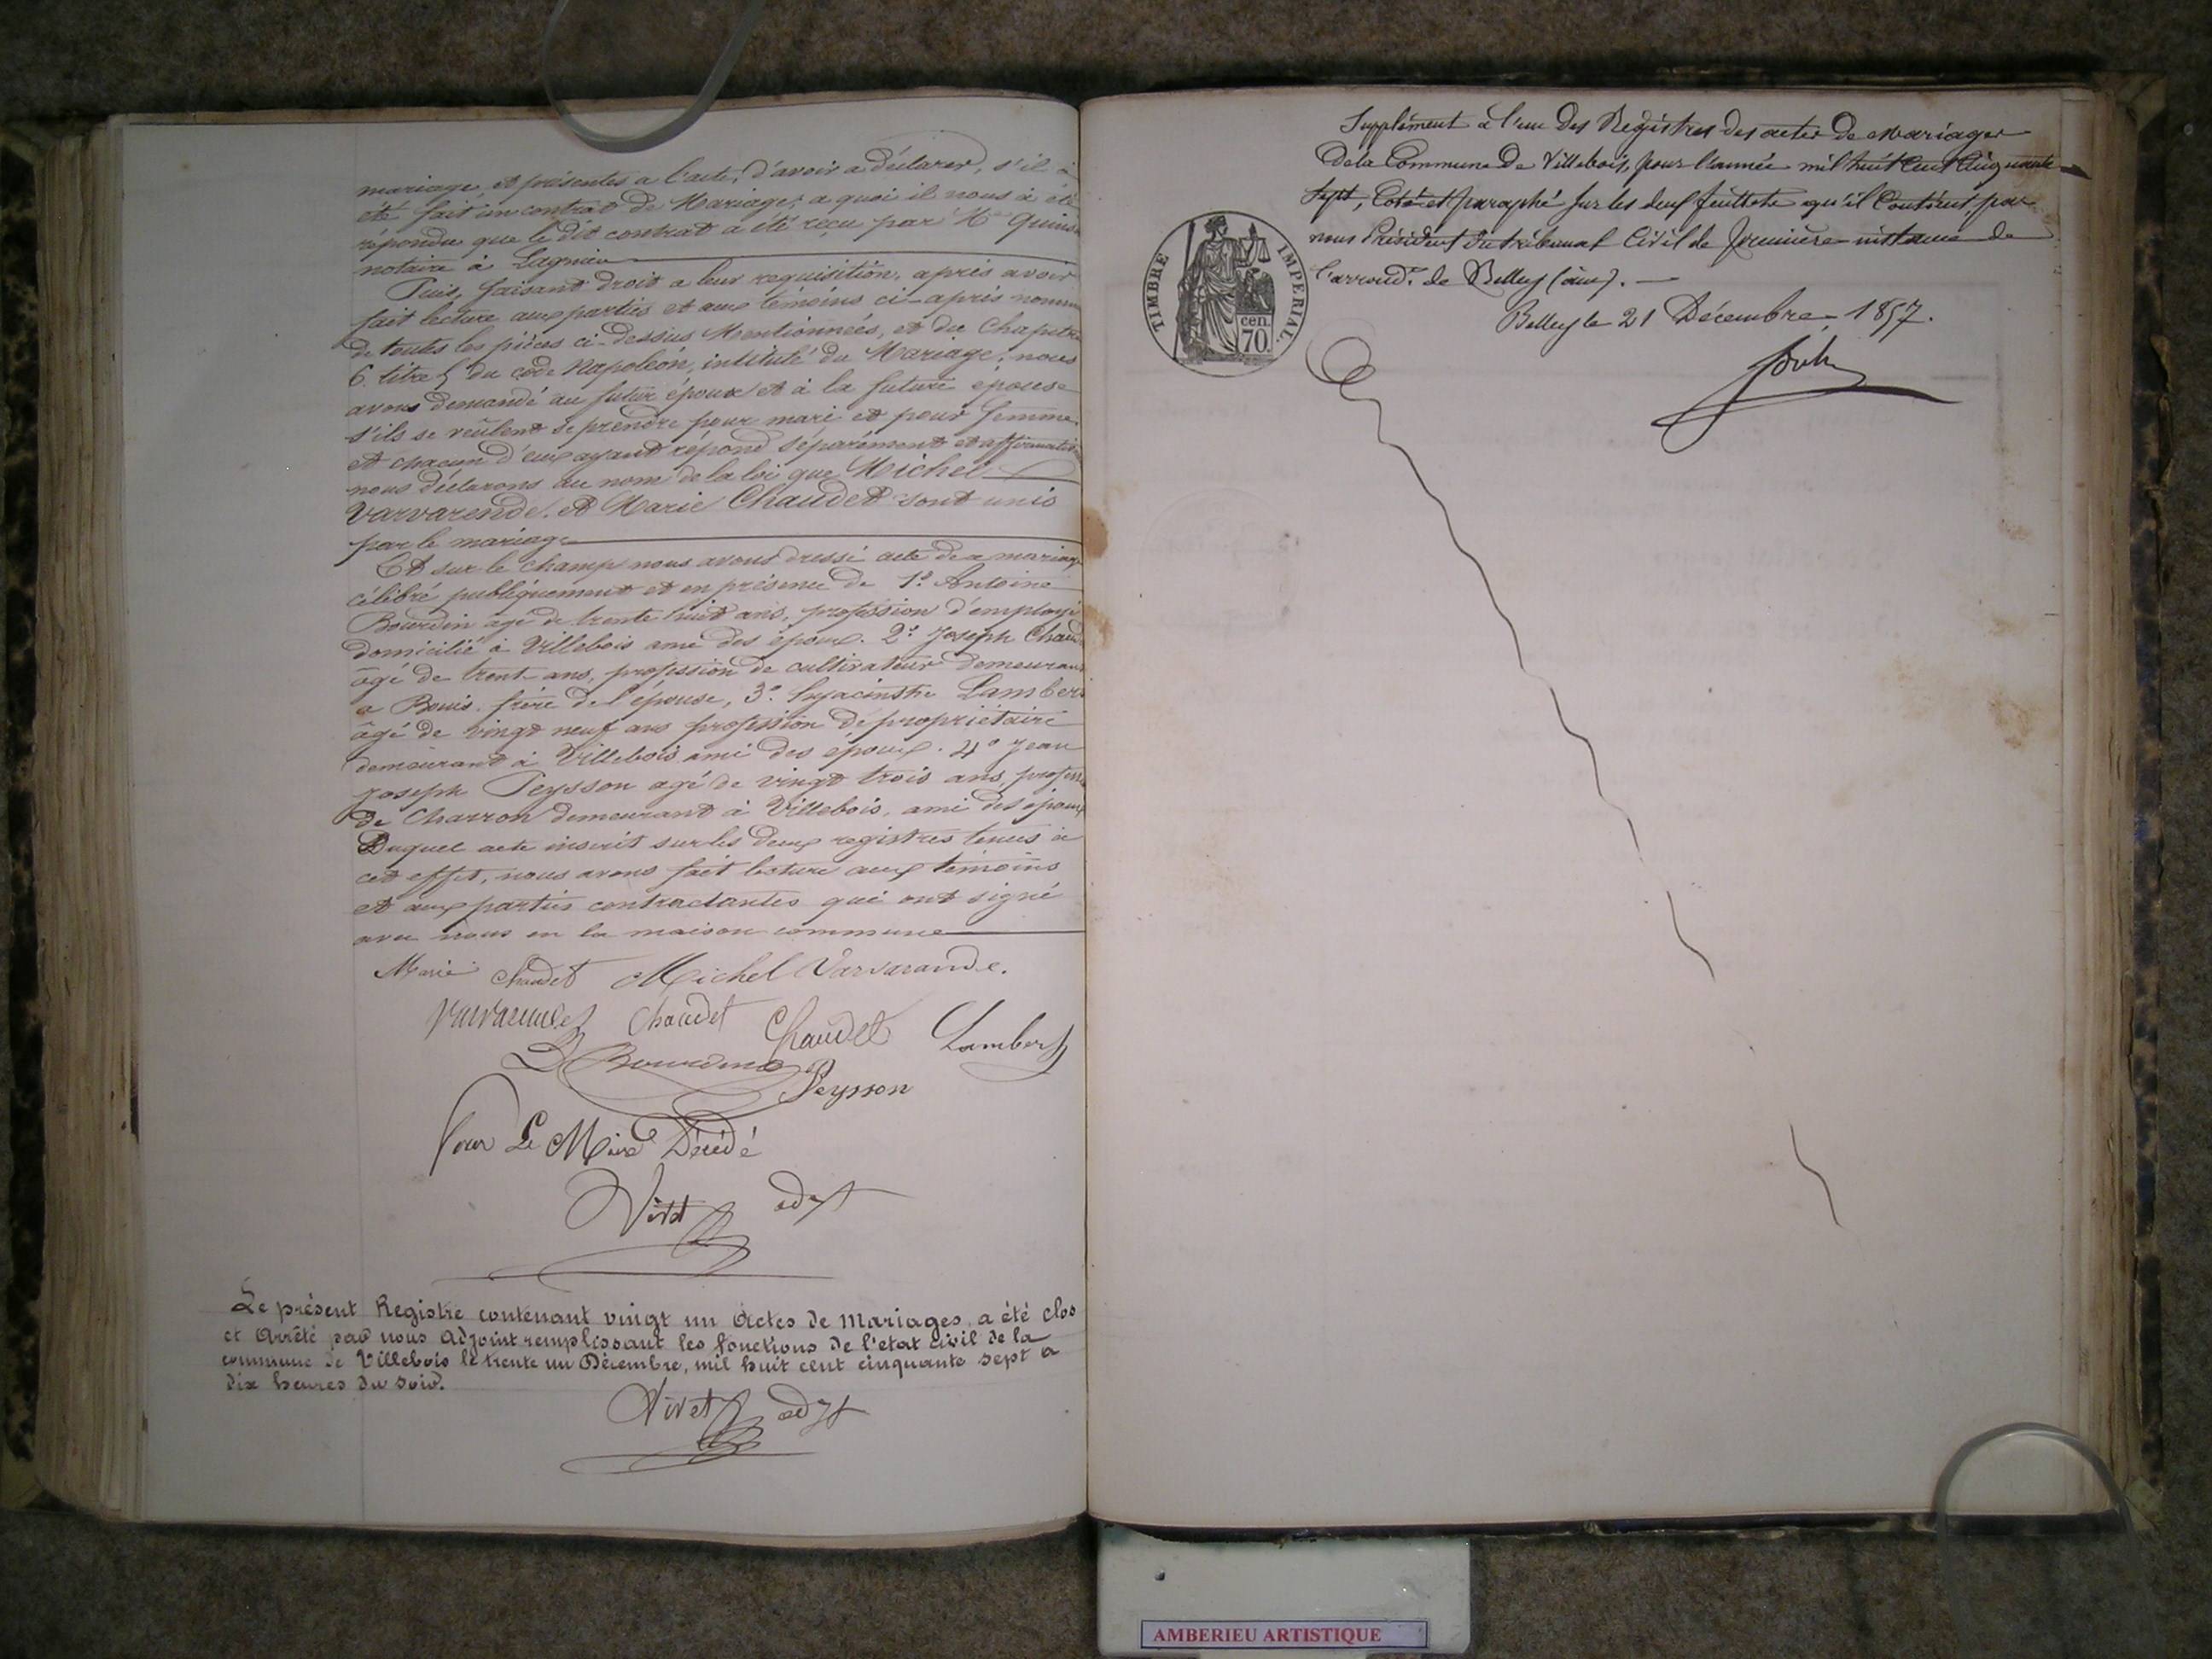 mariage, et présentes a l'acte, d'avoir a déclarer, s'il à
été fait un contrat de Mariage, a quoi il nous à été
répondu que le dit contrat a été reçu par Me
notaire à Lagnieu
Puis, faisant droit a leur requisition, après avoir
fait lecture aux parties et aux témoins ci-après nommés
de toutes les pièces ci-dessus Mentionnées, et du Chapitre
6. titre 5 du code Napoléon, intitulé du Mariage, nous
avons demandé au futur époux et à la future épouse
s'ils se veulent se prendre pour mari et pour femme
et chacun d'eux ayant répond séparément et
nous déclarons au nom de la loi que Michel
Varvarende. et Marie Chaudet sont unis
par le mariage
Et sur le champ nous avons dressé acte de ce mariage
célébré publiquement et en présence de 1º Antoine
Bourdin agé de trente huit ans, profession d'employé
domicilié à Villebois ami des époux. 2º Joseph
âgé de trent ans, profession de cultivateur demeurant
a Bouis frère de l'épouse, 3º hyacinthe Lambert
âgé de vingt neuf ans profession de propriétaire
demeurant à Villebois ami des époux. 4º Jean
Joseph Peysson agé de vingt trois ans,
de Charron demeurant à Villebois, ami des époux
Duquel acte inscrit sur les deux registres tenus à
cet effet, nous avons fait lecture aux témoins
et aux parties contractantes qui ont signé
avec nous en la maison commune
Marie Chaudet Michel Varvarande.
Chaudet Chaudet Lambert
Bourdin
Peysson
Pour Le Maire Décédé
Vivet adjt
Le présent Registre contenant vingt un Actes de Mariages, a été clos
et Arrêté par nous Adjoint remplissant les fonctions de l'état civil de la
commune de Villebois le trente un Décembre, mil huit cent cinquante sept a
dix heures du soir.
Vivet adjt
Supplément à l'un des Registres des actes de Mariages
de la Commune de Villebois, pour l'année mil huit cent cinquante
sept, Coté et paraphé sur les deux feuillets qu'il contient, par
nous Président du tribunal Civil de première instance de
l'arrondt. de Belley (ain).
Belley le 21 Décembre, 1857.
TIMBRE IMPERIAL.
cen.
70.
AMBERIEU ARTISTIQUE